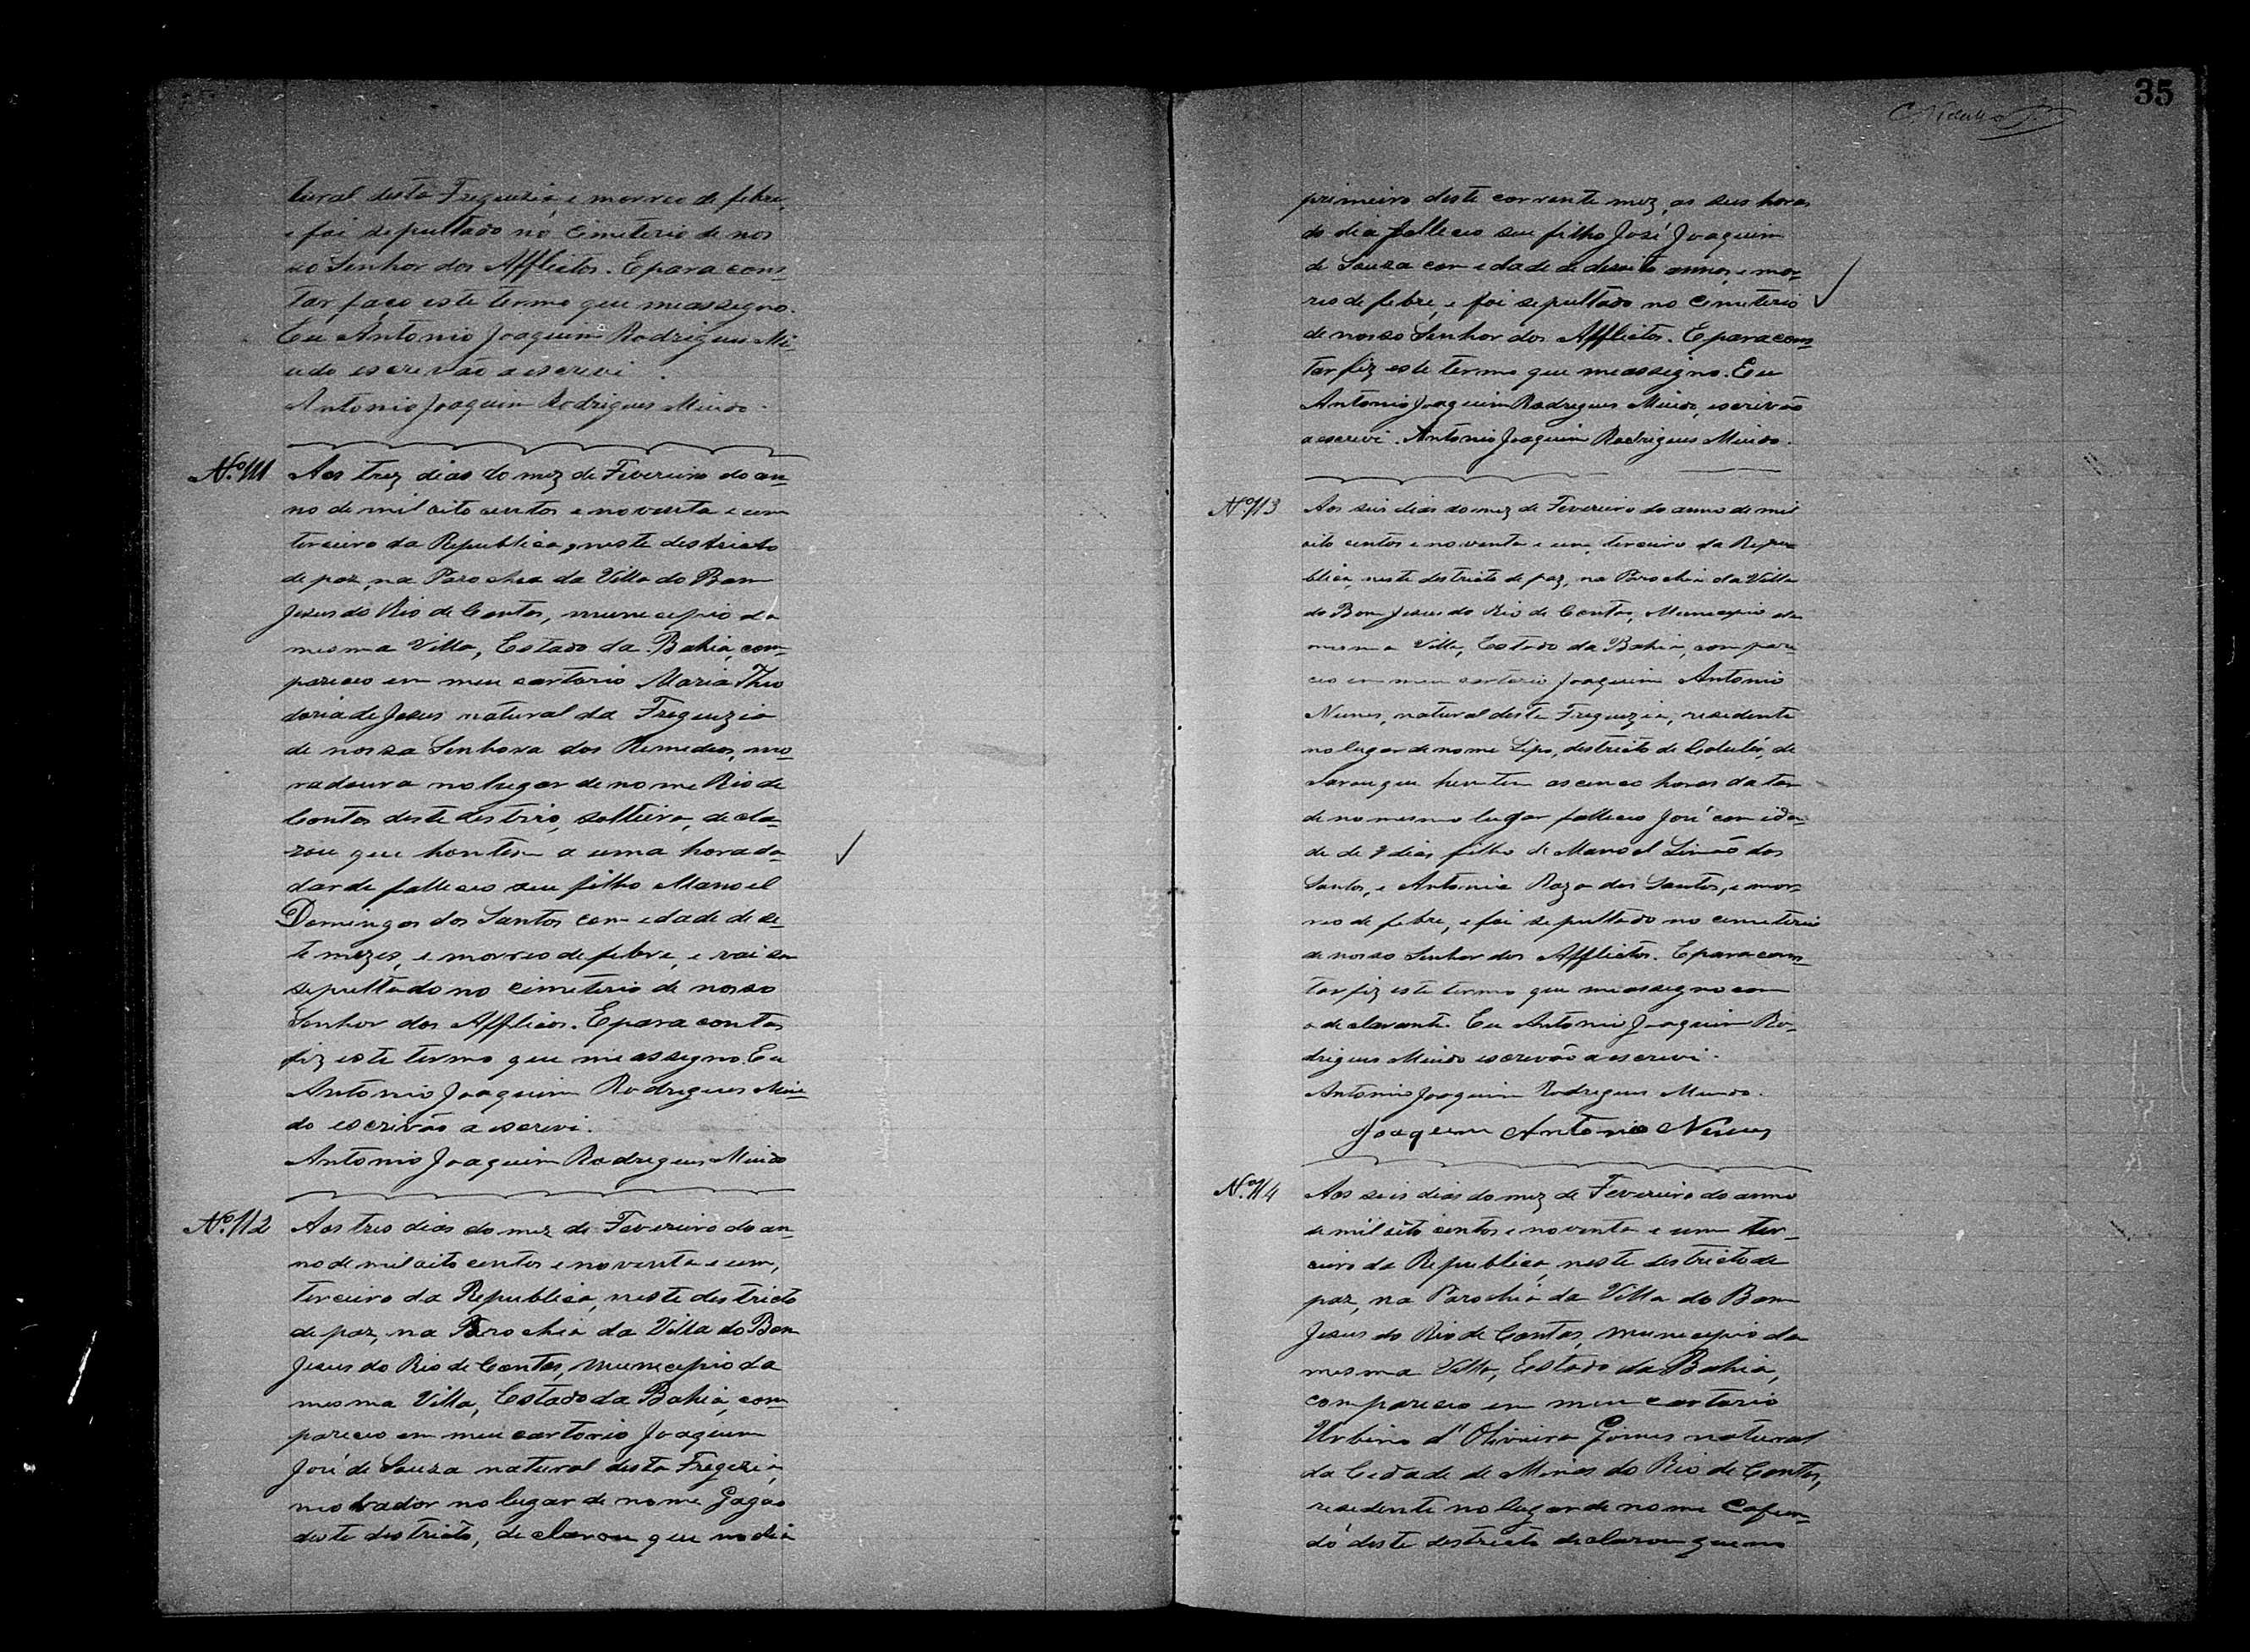 tural desta Freguezia, e morreo de febre,
e foi sepultado no Cimeterio de nos
so Senhor dos Afflictos. E para cons
tar faço este termo que me assegno.
Eu Antonio Joaquim Rodrigues Mi-
udo escrivão a escrevi.
Antonio Joaquim Rodrigues Miudo.
Nº 111
Aos trez dias do mez de Fevereiro do an-
no de mil oito centos e noventa e um
terceiro da Republica, neste destricto
de paz, na Parochia da Villa do Bom
Jesus do Rio de Contas, municepio da
mesma Villa, Estado da Bahia, com-
pareceo em meu cartorio Maria Theo
doria de Jesus natural da Freguezia
de nossa Senhora dos Remedios, mo-
radoura no lugar de nome Rio de
Contas deste destrito, solteira, decla-
rou que hontem a uma hora da
darde falleceo seu filho Manoel
Domingos dos Santos com edade de se-
te mezes, e morreo de febre, e vai ser
sepultado no cimeterio de nosso
Senhor dos Afflicos. E para contar
fiz este termo que me assegno. Eu
Antonio Joaquim Rodrigues Miu-
do escrivão a escrevi.
Antonio Joaquim Rodrigues Miudo
Nº 112
Aos tres dias do mez de Fevereiro do an-
no de mil oito centos e noventa e um,
terceiro da Republica, neste destricto
de paz, na Parochia da Villa do Bom
Jesus do Rio de Contas, municepio da
mesma Villa, Estado da Bahia, com
pareceo em meu cartorio Joaquim
José de Souza natural desta Fregezia,
morador no lugar de nome
deste destricto, declarou que no dia
35
primeiro deste corrente mez, as seis horas
do dia falleceo seu filho José Joaquim
de Souza com edade de desoito annos, e mor-
reo de febre, e foi sepultado no Cimeterio
de nosso Senhor dos Afflictos. E para cons
tar fiz este termo que me assegno. Eu
Antonio Joaquim Rodrigues Miudo, escrivão
a escrevi. Antonio Joaquim Rodrigues Miudo.
Nº 113
Aos seis dias do mez de Fevereiro do anno de mil
oito centos e noventa e um, terceiro da Repu
blica, neste destricto de paz, na Parochia da Villa
do Bom Jesus do Rio de Contas, Municepio da
mesma Villa, Estado da Bahia, compare
ceo em meu cartorio Joaquim Antonio
Nunes, natural desta Freguezia, residente
no lugar de nome destricto de de
larou que hontem as cinco horas da tar
de no mesmo lugar falleceo José com ida-
de de dias filho de Manoel Simão dos
Santos, e Antonia Roza dos Santos, e mor-
reo de febre, e foi sepultado no cemeterio
de nosso Senhor dos Afflictos. E para cons-
tar fiz este termo que me assegno com
o declarante. Eu Antonio Joaquim Ro-
drigues Miudo escrevão a escrevi.
Antonio Joaquim Rodrigues Miudo.
Joaquim Antonio Nunes
Nº 114
Aos seis dias do mez de Fevereiro do anno
de mil oito centos e noventa e um ter-
ceiro da Republica, neste destricto de
paz, na Parochia da Villa do Bom
Jesus do Rio de Contas, municepio da
mesma Villa, Estado da Bahia,
compareceo em meu cartorio
Urbino d'Oliveira Gomes natural
da Cidade de Minas do Rio de Contas,
residente no lugar de nome Cafun-
dó deste destricto declarou que no